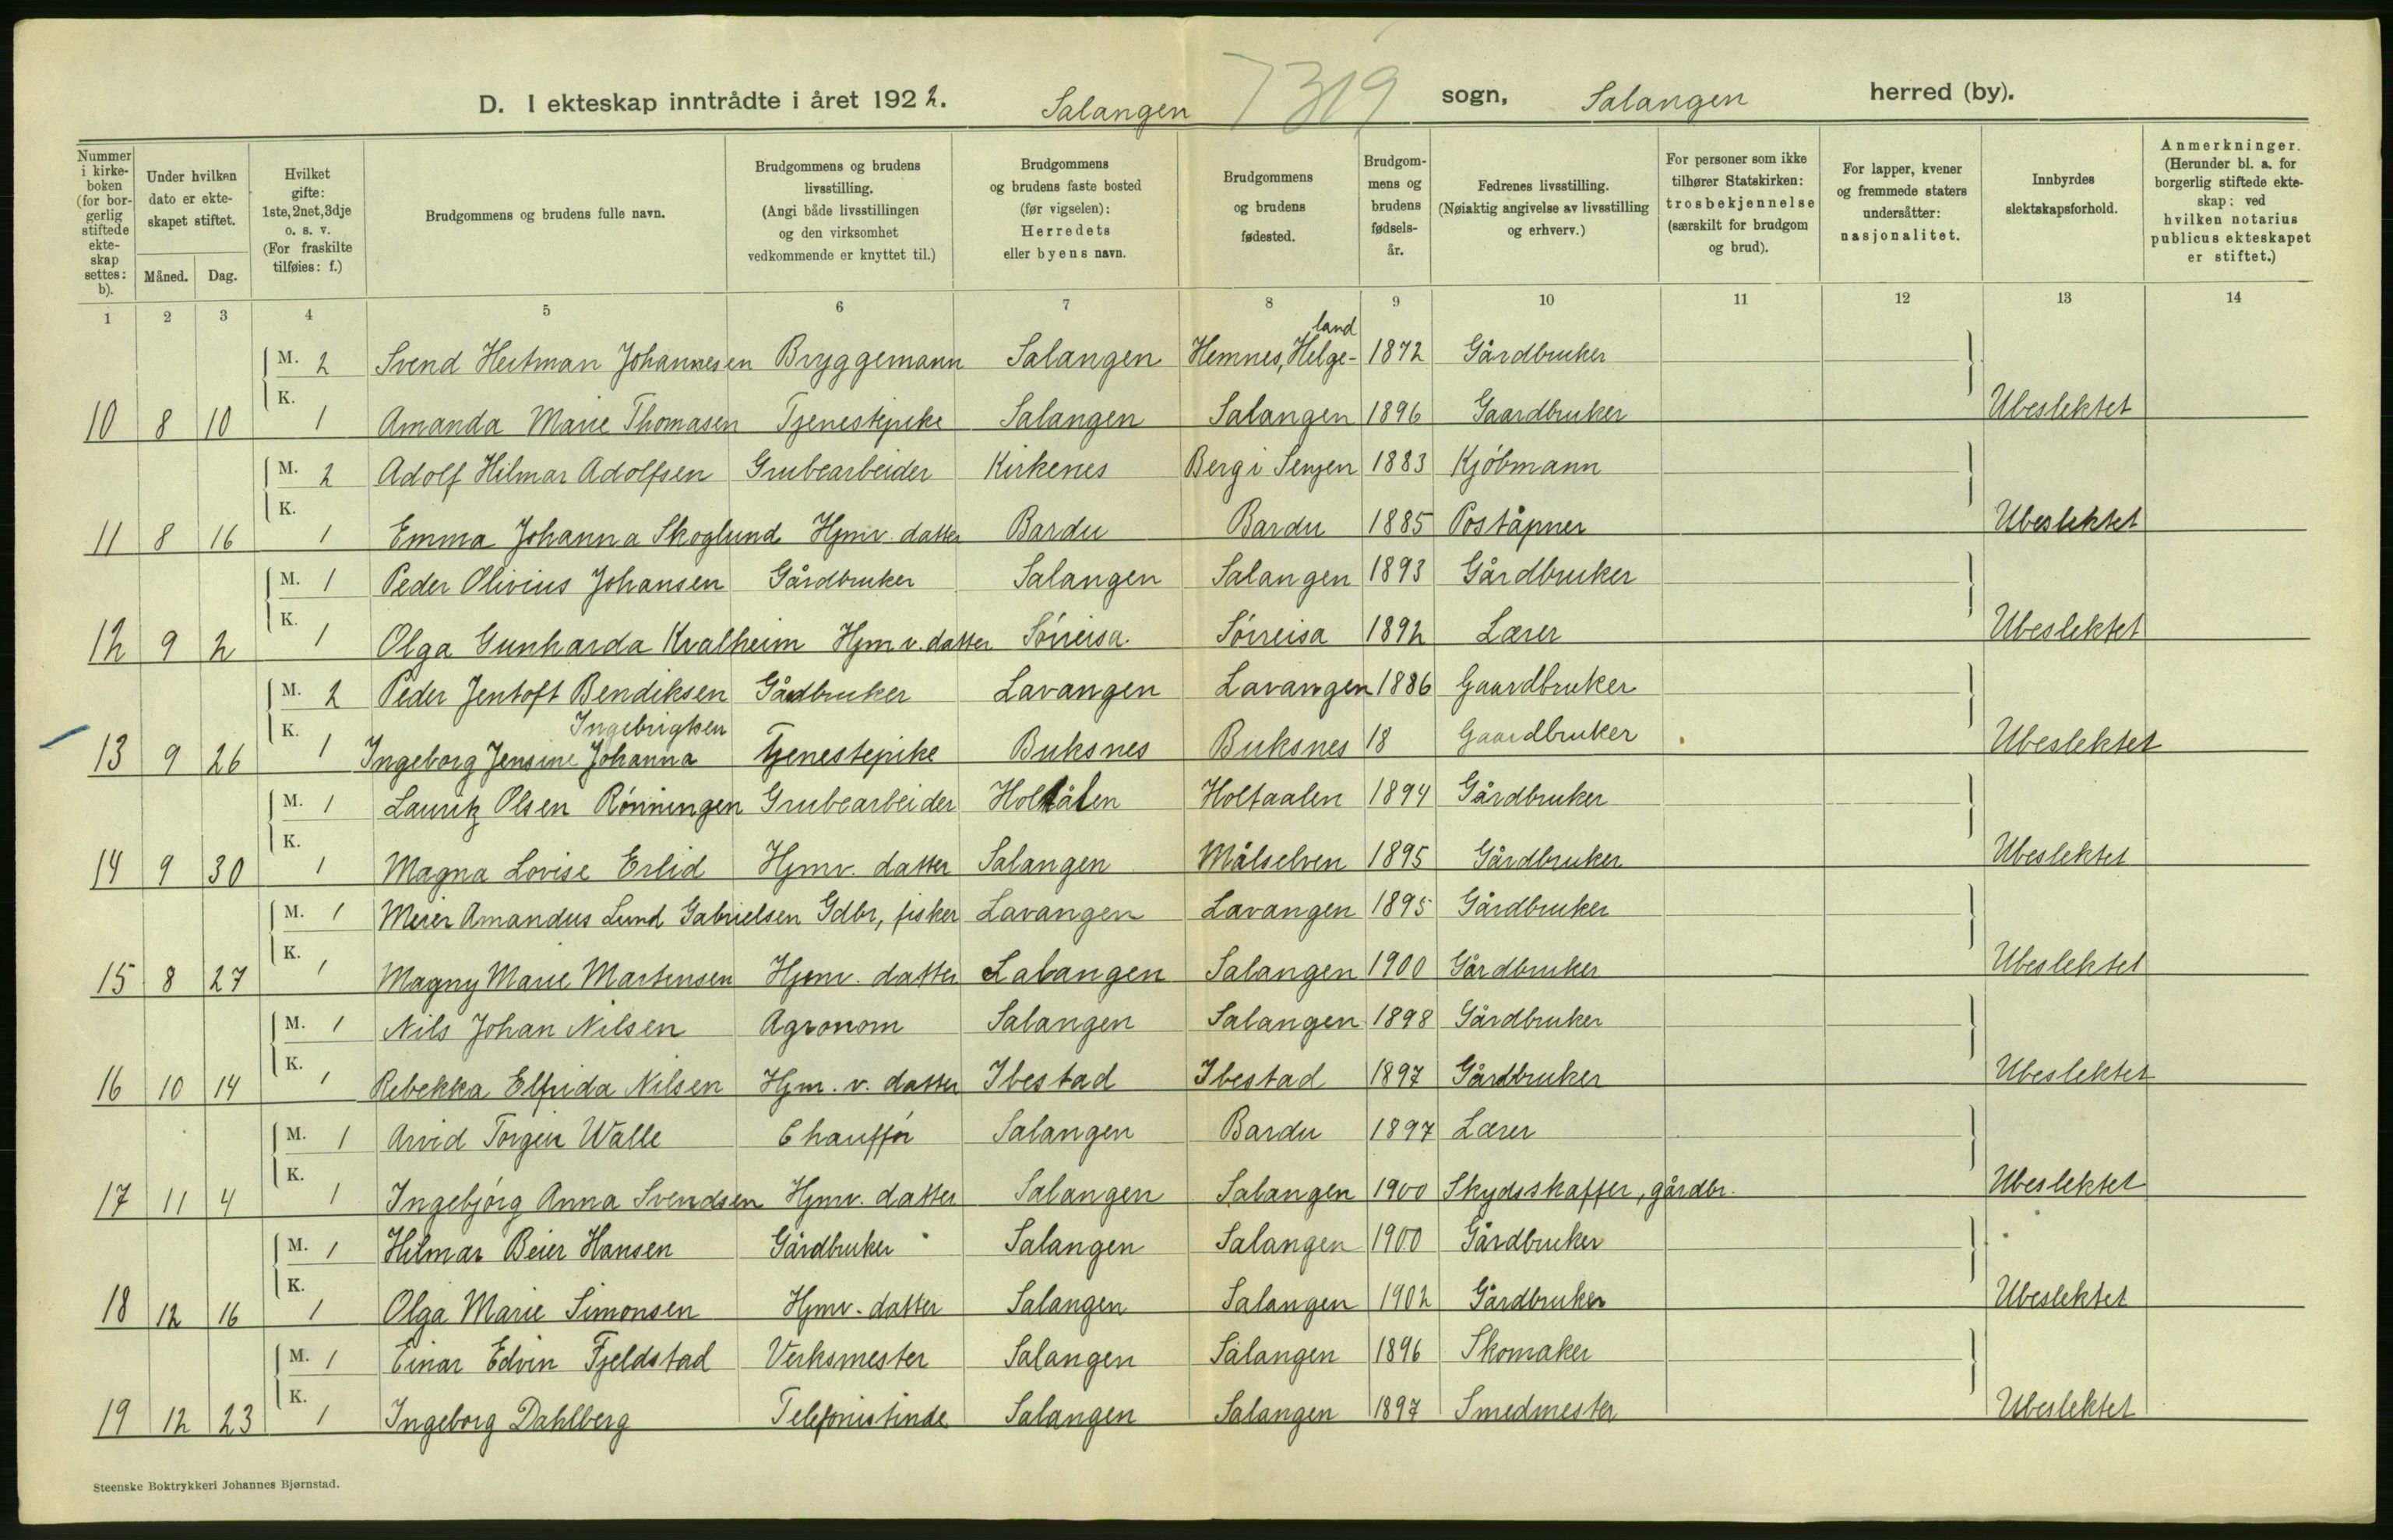 D. I ekteskap inntrådte i året 1922. Salangen 7319 sogn, Salangen herred (by).
Nummer i kirkeboken (for borgerlig stiftede ekteskap settes: b).
Under hvilken dato er ekteskapet stiftet.
Måned. Dag.
Hvilket gifte: 1ste, 2net, 3dje o. s. v. (For fraskilte tilføies: f.)
Brudgommens og brudens fulle navn.
Brudgommens og brudens livsstilling. (Angi både livsstillingen og den virksomhet vedkommende er knyttet til.)
Brudgommens og brudens faste bosted (før vigselen): Herredets eller byens navn.
Brudgommens og brudens fødested.
Brudgommens og brudens fødselsår.
Fedrenes livsstilling. (Nøiaktig angivelse av livsstilling og erhverv.)
For personer som ikke tilhører Statskirken: trosbekjennelse (særskilt for brudgom og brud).
For lapper, kvener og fremmede staters undersåtter: nasjonalitet.
Innbyrdes slektskapsforhold.
Anmerkninger. (Herunder bl. a. for borgerlig stiftede ekteskap: ved hvilken notarius publicus ekteskapet er stiftet.)
1 2 3 4 5 6 7 8 9 10 11 12 13 14
M. 2 Svend Heitman Johannesen Bryggemann Salangen Hemnes, Helgeland 1872 Gårdbruker
10 8 10 K. 1 Amanda Marie Thomasen Tjenestepike Salangen Salangen 1896 Gaardbruker Ubeslektet
M. 2 Adolf Hilmar Adolfsen Grubearbeider Kirkenes Berg i Senjen 1883 Kjöbmann
11 8 16 K. 1 Emma Johanna Skoglund Hjmv. datter Bardu Bardu 1885 Poståpner Ubeslektet
M. 1 Peder Olivius Johansen Gårdbruker Salangen Salangen 1893 Gårdbruker
12 9 2 K. 1 Olga Gunharda Kvalheim Hjm v. datter Sörreisa Sörreisa 1892 Lærer Ubeslektet
M. 2 Peder Jentoft Bendiksen Gårdbruker Lavangen Lavangen 1886 Gaardbruker
Ingebrigtsen
13 9 26 K. 1 Ingeborg Jensine Johanna Tjenestepike Buksnes Buksnes 18 Gaardbruker Ubeslektet
M. 1 Lauritz Olsen Rönningen Grubearbeider Holtålen Holtaalen 1894 Gårdbruker
14 9 30 K. 1 Magna Lovise Erlid Hjmv. datter Salangen Målselven 1895 Gårdbruker Ubeslektet
M. 1 Meier Amandus Lund Gabrielsen Gdbr, fisker Lavangen Lavangen 1895 Gårdbruker
15 8 27 K. 1 Magny Marie Martinsen Hjmv. datter Salangen Salangen 1900 Gårdbruker Ubeslektet
M. 1 Nils Johan Nilsen Agronom Salangen Salangen 1898 Gårdbruker
16 10 14 K. 1 Rebekka Elfrida Nilsen Hjm. v. datter Ibestad Ibestad 1897 Gårdbruker Ubeslektet
M. 1 Arvid Torgeir Walle Chaufför Salangen Bardu 1897 Lærer
17 11 4 K. 1 Ingebjörg Anna Svendsen Hjmv. datter Salangen Salangen 1900 Skydsskaffer, gårdbr. Ubeslektet
M. 1 Hilmar Beier Hansen Gårdbruker Salangen Salangen 1900 Gårdbruker
18 12 16 K. 1 Olga Marie Simonsen Hjmv. datter Salangen Salangen 1902 Gårdbruker Ubeslektet
M. 1 Einar Edvin Fjeldstad Verksmester Salangen Salangen 1896 Skomaker
19 12 23 K. 1 Ingeborg Dahlberg Telefonistinde Salangen Salangen 1897 Smedmester Ubeslektet
Steenske Boktrykkeri Johannes Bjørnstad.